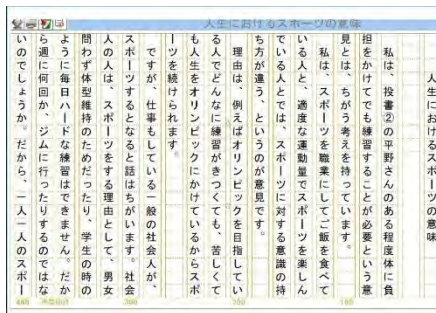 人生におけるスポーツの意味
人生におけるスポーツの意味
私は、投書②の平野さんのある程度体に負
担をかけてでも練習することが必要という意
見とは、ちがう考えを持っています。
私は、スポーツを職業にしてご飯を食べて
いる人と、適度な運動量でスポーツを楽しん
でいる人とでは、スポーツに対する意識の持
ち方が違う、というのが意見です。
理由は、例えばオリンピックを目指してい
る人でどんなに練習がきつくても、苦しくて
も人生をオリンピックにかけているからスポ
ーツを続けられます。
ですが、仕事もしている一般の社会人が、
スポーツするとなると話はちがいます。社会
人の人は、スポーツをする理由として、男女
問わず体型維持のためだったり、学生の時の
ように毎日ハードな練習はできません。だか
ら週に何回か、ジムに行ったりするのではな
いのでしょうか。だから、一人一人のスポー